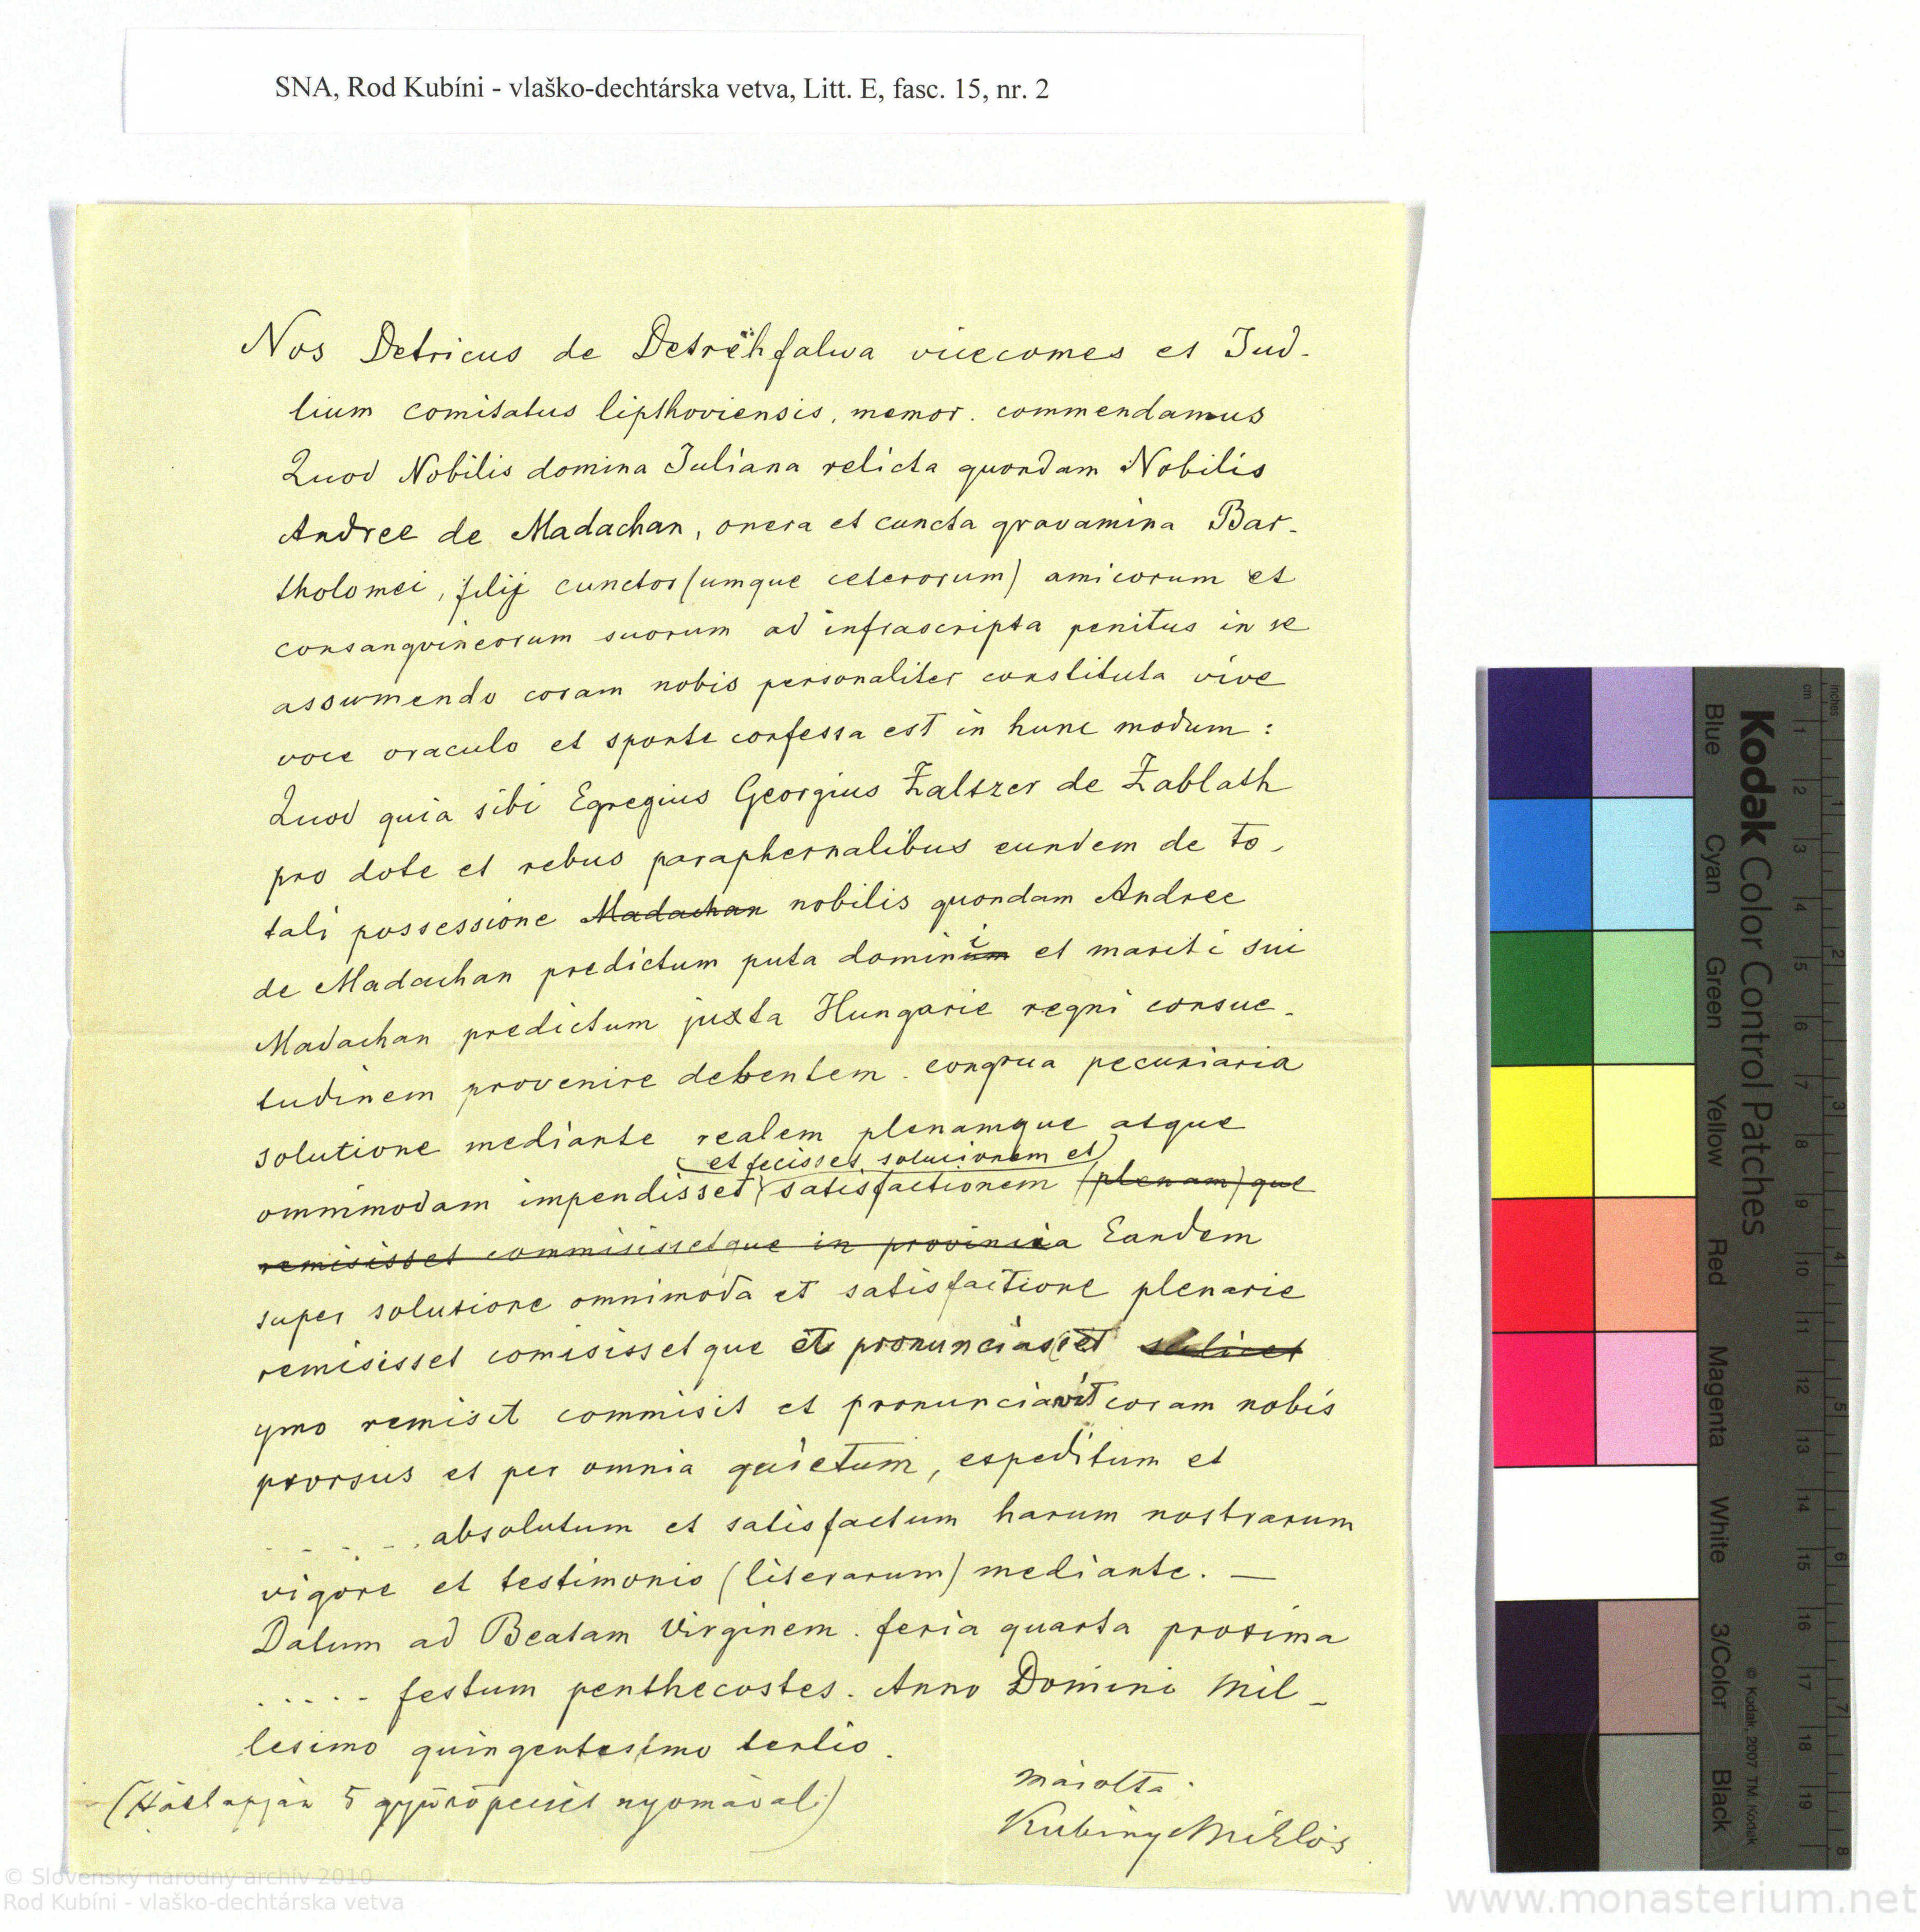 SNA, Rod Kubíni - vlaško-dechtárska vetva, Litt. E, fasc. 15, nr. 2
Nos Detricus de Detrehfalwa vicecomes et Jud-
lium comitatus lipthoviensis, memor. commendamus
Quod Nobilis domina Juliana relicta quondam Nobilis
Andree de Madachan, onera et cuncta gravamina Bar-
tholomei, filij cunctor(umque ceterorum) amicorum et
consangvineorum suorum ad infrascripta penitus in se
assumendo coram nobis personaliter constituta vive
voce oraculo et sponte confessa est in hunc modum:
Quod quia sibi Egregius Georgius Zaltzer de Zablath
pro dote et rebus paraphernalibus eundem de to-
tali possessione Madachan nobilis quondam Andree
de Madachan predictum puta domini et mariti sui
Madachan predictum juxta Hungarie regni consue-
tudinem provenire debentem. congrua pecuniaria
solutione mediante realem plenamque atque
(et fecisset solucionem et)
ommimodam impendisset satisfactionem (plenam)que
remisisset commisissetque in provincia Eandem
super solutione omnimoda et satisfactione plenarie
remisisset comisissetque et pronuncias(s)et scilicet
ymo remisit commisit et pronunciavit coram nobis
prorsus et per omnia quietum, expeditum et
. . . . . . absolutum et satisfactum harum nostrarum
vigore et testimonio (literarum) mediante. —
Datum ad Beatam Virginem. feria quarta proxima
. . . . . festum penthecostes. Anno Domini Mil-
lesimo quingentesimo tertio.
(Hátlapján 5 gyűrőpecsét nyomával)
másolta
Kubinyi Miklós
Kodak Color Control Patches
Blue Cyan Green Yellow Red Magenta White 3/Color Black
© Kodak, 2007 TM: Kodak
inches 1 2 3 4 5 6 7 8
cm 1 2 3 4 5 6 7 8 9 10 11 12 13 14 15 16 17 18 19
© Slovenský národný archív 2010
Rod Kubíni - vlaško-dechtárska vetva
www.monasterium.net